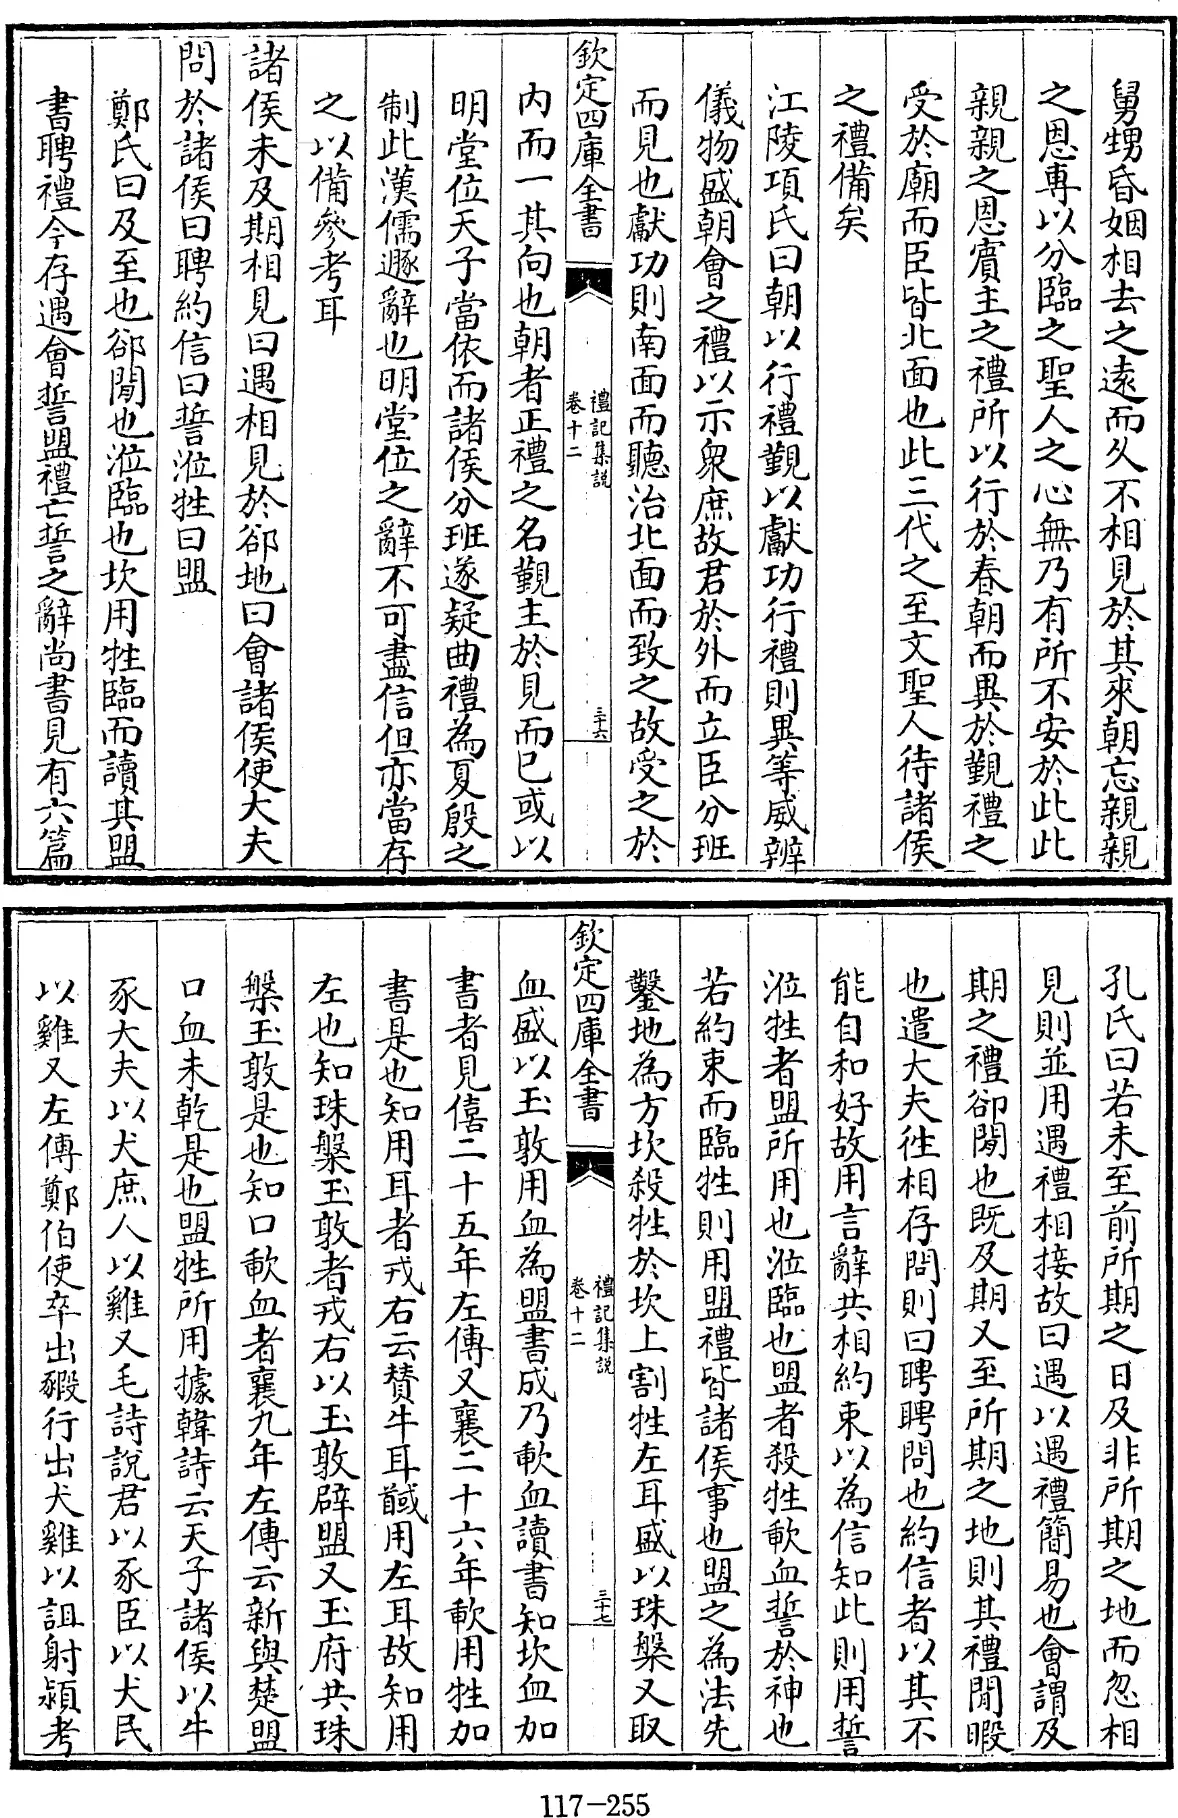 舅甥昏姻相去之遠而久不相見於其來朝忘親親
之恩専以分臨之聖人之心無乃有所不安於此此
親親之恩賓主之禮所以行於春朝而異於覲禮之
受於廟而臣皆北面也此三代之至文聖人待諸侯
之禮備矣
江陵項氏曰朝以行禮覲以獻功行禮則異等威辨
儀物盛朝會之禮以示衆庶故君於外而立臣分班
而見也獻功則南面而聽治北面而致之故受之於
欽定四庫全書
禮記集説
卷十二
三十六
内而一其向也朝者正禮之名覲主於見而已或以
明堂位天子當依而諸侯分班遂疑曲禮為夏殷之
制此漢儒遯辭也明堂位之辭不可盡信但亦當存
之以備參考耳
諸侯未及期相見曰遇相見於郤地曰會諸侯使大夫
問於諸侯曰聘約信曰誓涖牲曰盟
鄭氏曰及至也郤閒也涖臨也坎用牲臨而讀其盟
書聘禮今存遇會誓盟禮亡誓之辭尚書見有六篇
孔氏曰若未至前所期之日及非所期之地而忽相
見則並用遇禮相接故曰遇以遇禮簡易也會謂及
期之禮卻閒也既及期又至所期之地則其禮閒暇
也遣大夫往相存問則曰聘聘問也約信者以其不
能自和好故用言辭共相約束以為信知此則用誓
涖牲者盟所用也涖臨也盟者殺牲歃血誓於神也
若約束而臨牲則用盟禮皆諸侯事也盟之為法先
鑿地為方坎殺牲於坎上割牲左耳盛以珠槃又取
欽定四庫全書
禮記集説
卷十二
三十七
血盛以玉敦用血為盟書成乃歃血讀書知坎血加
書者見僖二十五年左傳又襄二十六年歃用牲加
書是也知用耳者戎右云贊牛耳馘用左耳故知用
左也知珠槃玉敦者戎右以玉敦辟盟又玉府共珠
槃玉敦是也知口歃血者襄九年左傳云新與楚盟
口血未乾是也盟牲所用據韓詩云天子諸侯以牛
豕大夫以犬庶人以雞又毛詩說君以豕臣以犬民
以雞又左傳鄭伯使卒出豭行出犬雞以詛射潁考
117-255